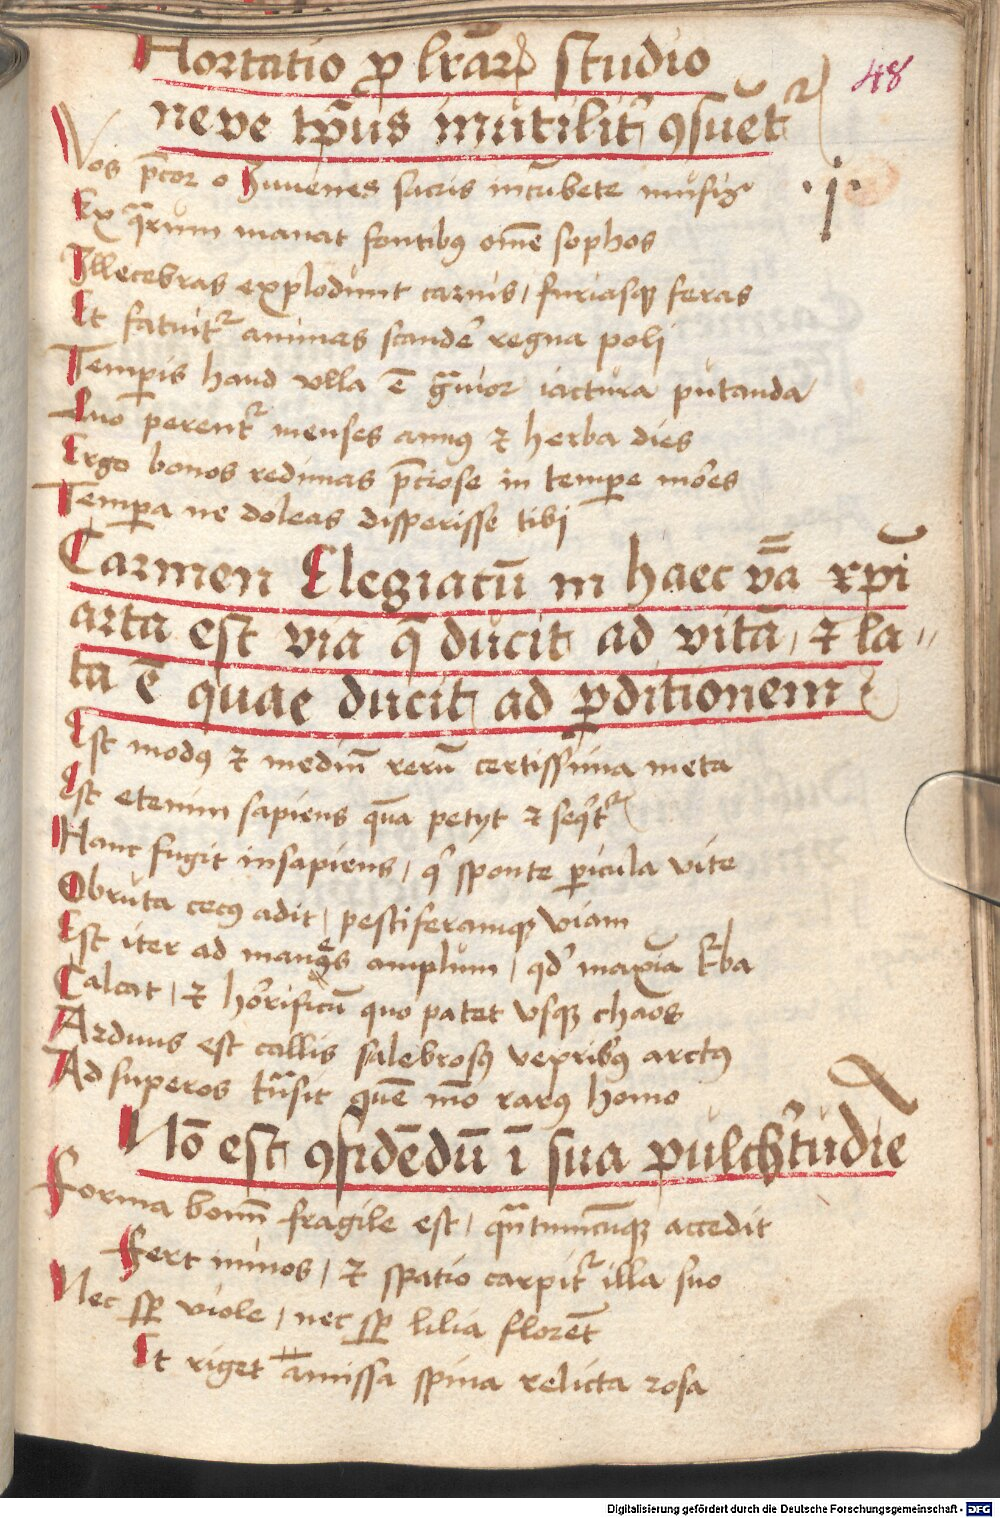 Hortatio ꝓ lr̄arꝝ studio
neve tp̄us inutilit̄ ꝯsuet᷑
48
Vos p̄cor o Iuuenes sacris incu̅bete musis
·I·
Ex q̄rum manat fontibꝰ om̄e sophos
Illecebras explodunt carnis, furiasqꝫ feras
Et fatuit᷑ animas scande᷑ regna poli
Temꝑis haud vlla ē gᷓuior iactura putanda
Quo perent᷑ menses annꝰ ⁊ herba dies
Ergo bonos redimas p̄ciose in tempe mo᷑es
Tempa ne doleas disperisse tibi
Carmen Elegiacū in haec v̄a xp̄i
arta est via q̄ ducit ad vitā, ⁊ la⸗
ta ē quae ducit ad ꝑditionem
Est modꝰ ⁊ mediū rerū certissima meta
Est etenim sapiens quā petyt ⁊ seq᷑t᷑
Hanc fugit insapiens, q̇ sponte ꝑicula vite
Obruta cecꝰ adit, pestiferamqꝫ viam
Est iter ad manes amplum, qd̓ maxīa t᷑ba
Calcat, ⁊ ho᷑rificū quo patet vsqꝫ chaos
Arduus est callis salebrosꝰ vepribꝰ arctꝰ
Ad superos tᷓnsit quē mō rarꝰ homo
Nō est ꝯfidēdū ī sua pulch᷑tudīe
Forma bonū fragile est, qᷓntumcūqꝫ accedit
Fert minos, ⁊ spatio carpit᷑ illa suo
Nec sꝑ viole, nec sꝑ lilia florēt
Et riget amissa spina relicta rosa
Digitalisierung gefördert durch die Deutsche Forschungsgemeinschaft - DFG